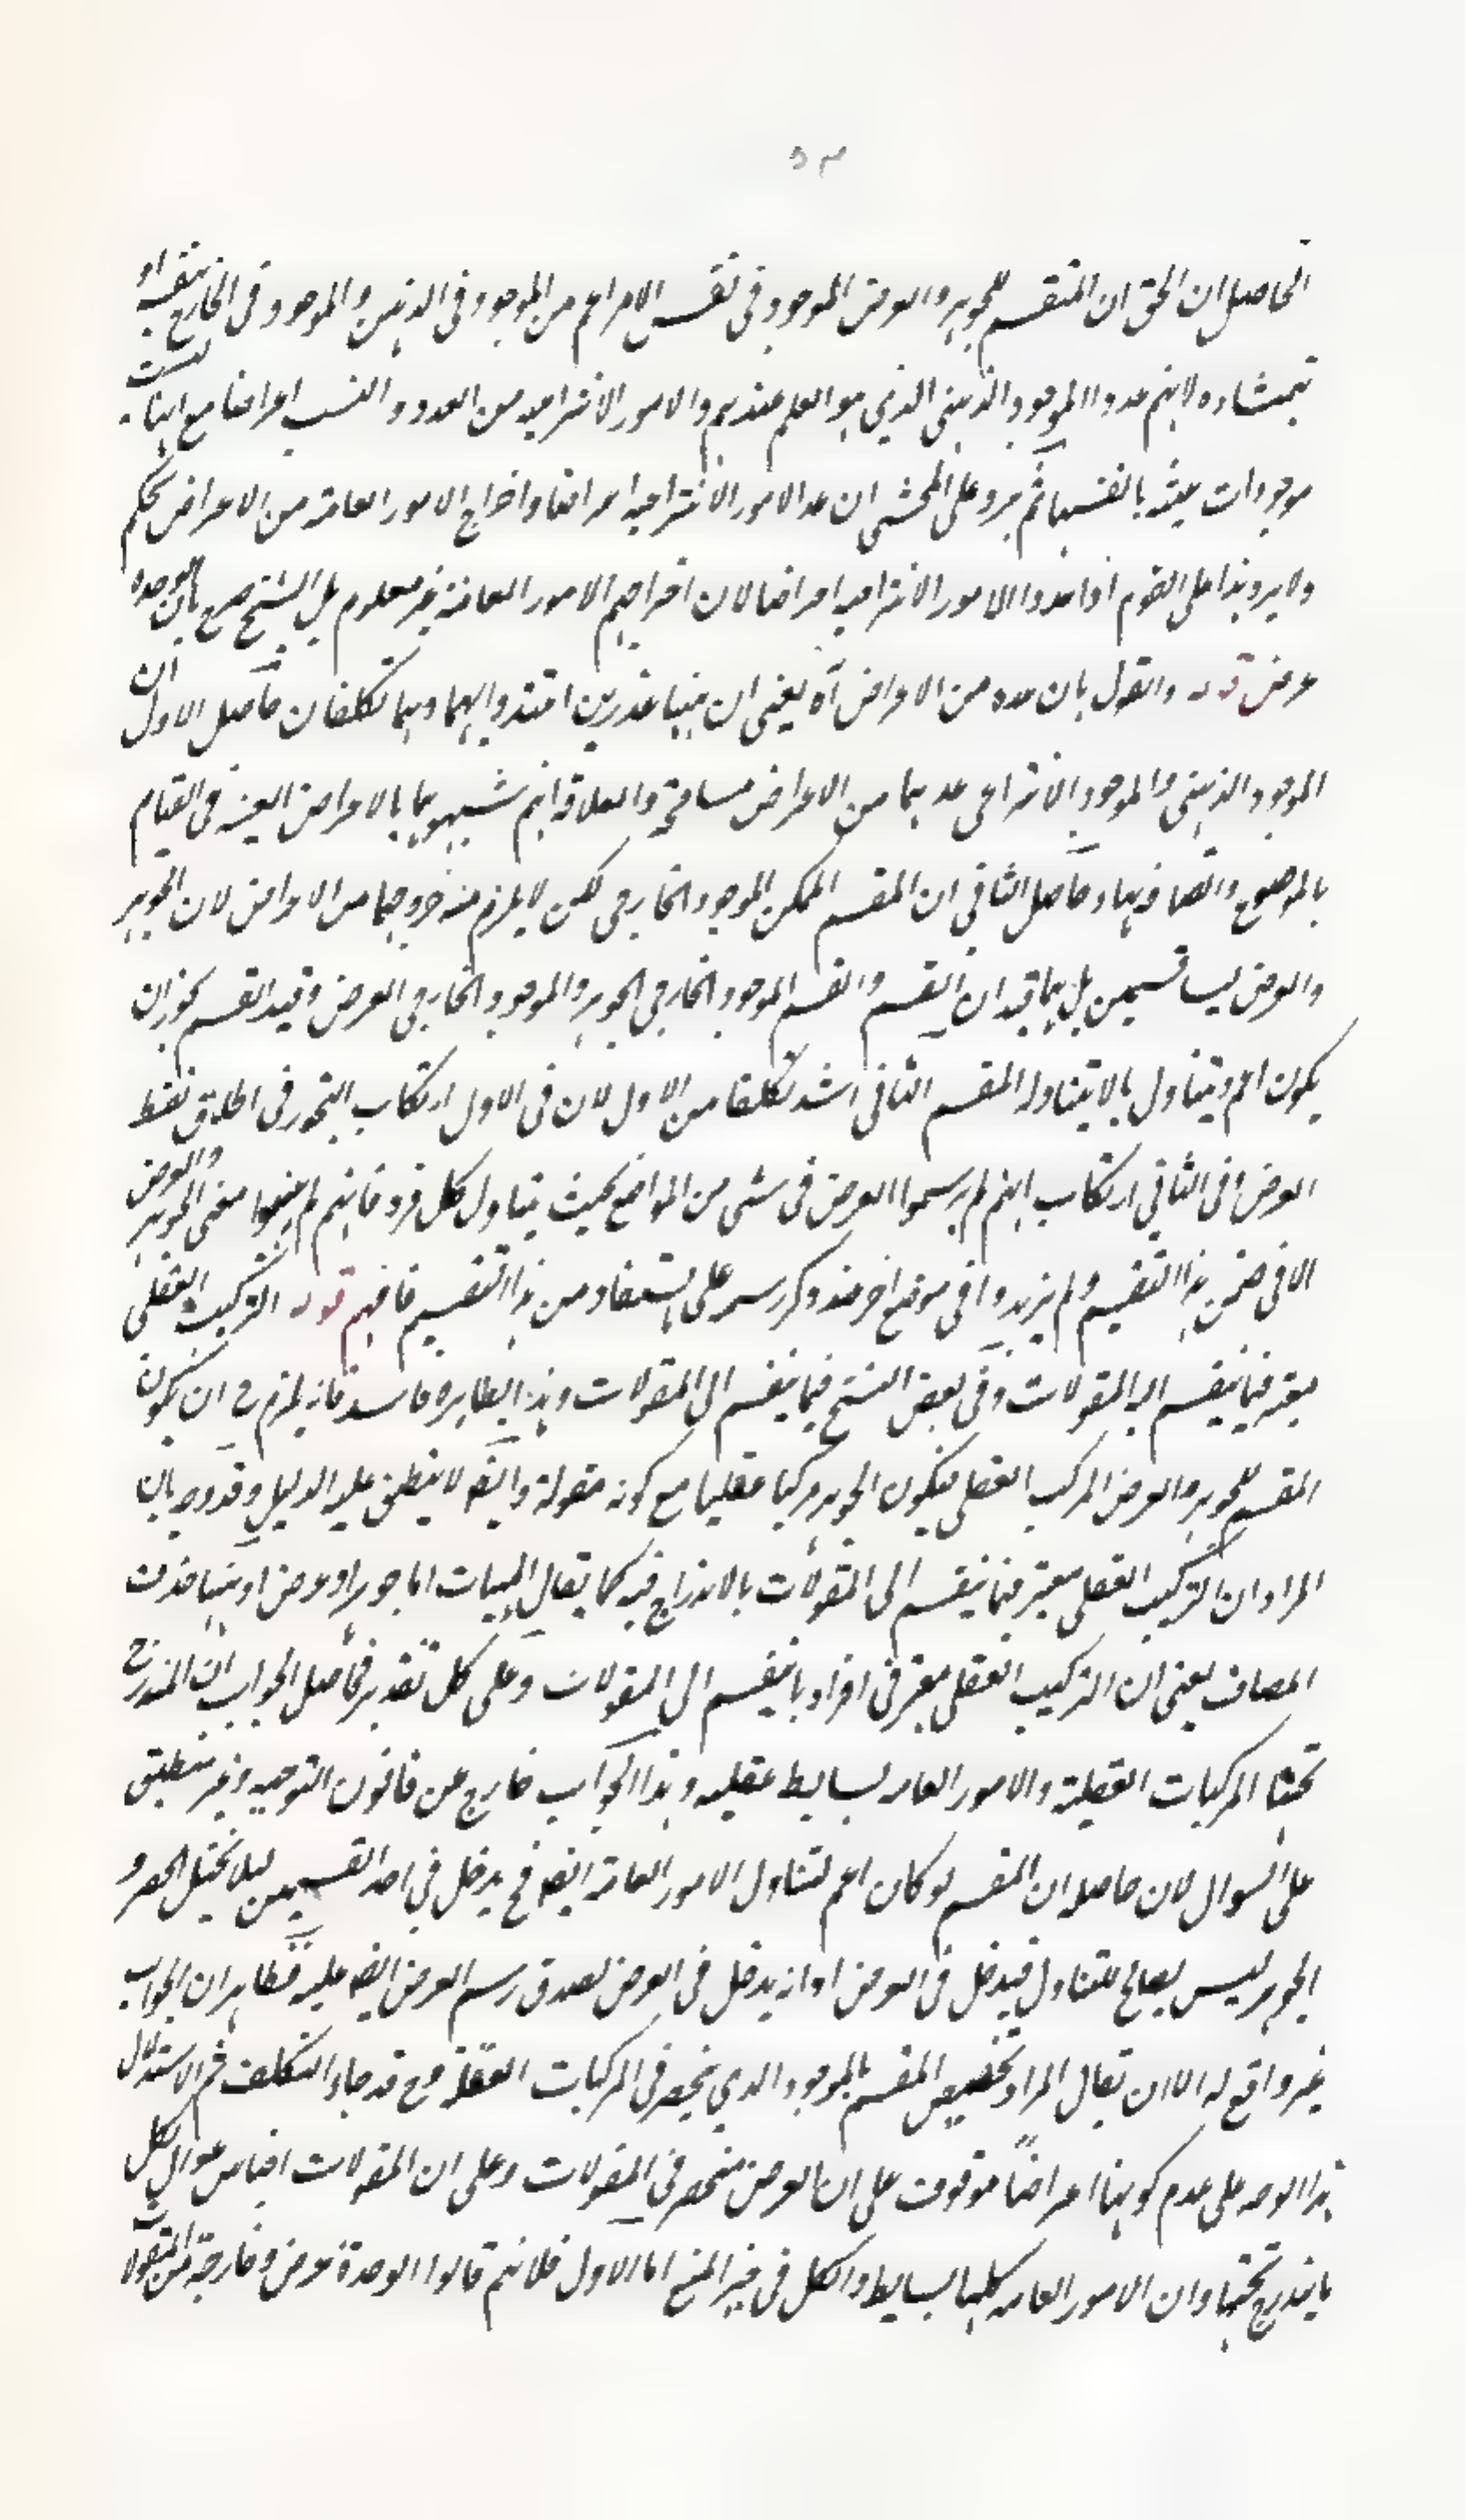 ٥٣
الحاصل ان الحق ان المقسم للجوهر والعرض الموجود فى نفس الامر اعم من الموجود فى الذهن والموجود فى الخارج بنفسه او
بمنشاءه لانهم عدوا الموجود الذهنى الذي هو العلم عندهم والامور الانتزاعيه من العدد والنسب اعراضا مع انها ليست
موجودات عينية بانفسها ثم يرد على المحشى ان عد الامور الانتزاعيه اعراضا واخراج الامور العامة من الاعراض تحكم
ولا يرد هذا على القوم اذا عدوا الامور الانتزاعيه اعراضا لان اخراجهم الامور العامة غير معلوم بل الشيخ صرح بان الوحدة
عرض قوله والقول بان عده من الاعراض آه يعنى ان ههنا عذرين اعتذروا بهما وهما تكلفان حاصل الاول ان
الموجود الذهنى والموجود الانتزاعى عدهما من الاعراض مسامحة والعلاقة انهم شبهوهما بالاعراض العينية فى القيام
بالموضوع واتصافه بها وحاصل الثانى ان المقسم الممكن الموجود الخارجى لكن لا يلزم منه خروجهما من الاعراض لان الجوهر
والعرض ليسا قسيمين بل هما قيدان للقسم والقسم الموجود الخارجى الجوهر والموجود الخارجى العرض وقيد القسم يجوز ان
يكون اعم ويتناول ما لا يتناوله المقسم الثانى اشد تكلفا من الاول لان فى الاول ارتكاب التجوز فى اطلاق لفظ
العرض وفى الثانى ارتكاب انهم لم يرسموا العرض فى شى من المواضع بحيث يتناول كل فرد فانهم لم يفهموا معنى الجوهر والعرض
الا فى ضمن هذا التقسيم ولم يزيدوا فى موضع اخر منه وذكر رسم على ما يستفاد من هذا التقسيم فافهم قوله التركيب العقلى
معتبر فيما ينقسم اليه المقولات وفى بعض النسخ فيما ينقسم الى المقولات وهذا بظاهره فاسد فانه يلزم ح ان يكون
المقسم للجوهر والعرض المركب العقلى فيكون الجوهر مركبا عقليا مع كونه مقولة وايضا لا ينطبق عليه الدليل وقد وجه بان
المراد ان التركيب العقلى معتبر فيما ينقسم الى المقولات بالاندراج فيه كما يقال المهيات اما جوهر او عرض او ههنا حذف
المضاف يعنى ان التركيب العقلى معتبر فى افراد ما ينقسم الى المقولات وعلى كل تقدير فحاصل الجواب ان المندرج
تحتها المركبات العقلية والامور العامه بسايط عقليه وهذا الجواب خارج عن قانون التوجيه وغير منطبق
على السوال لان حاصله ان المقسم لو كان اعم لتناول الامور العامة ايضا فح يدخل فى احد القسمين لئلا يختل الحصر و
الجوهر ليس بصالح للتناول فيدخل فى العرض او انه يدخل فى العرض لصدق رسم العرض ايضا عليه فظاهر ان الجواب
غير واقع له الا ان يقال المراد تخصيص المقسم بالموجود الذي ينحصر فى المركبات العقلية وح قد جاء التكلف ثم الاستدلال
بهذا الوجه على عدم كونها اعراضاً موقوف على ان العرض منحصر فى المقولات وعلى ان المقولات اجناس عوال لكل
ما يندرج تحتها وان الامور العامه كلها بسايط والكل فى حيز المنع اما الاول فلانهم قالوا الوحدة عرض وخارجة من المقولات